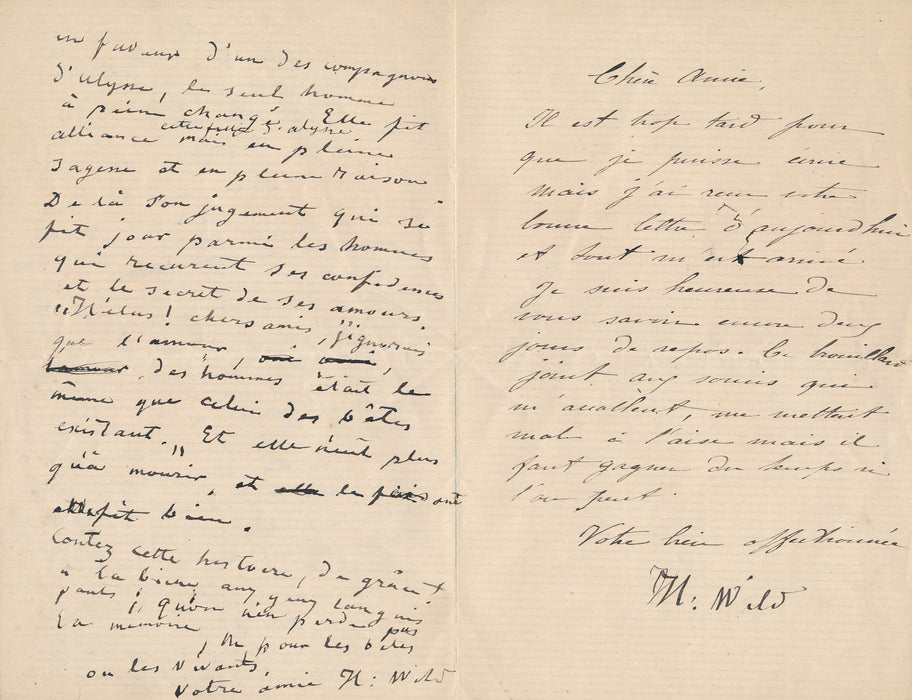 en faveur d'un des compagnons
d'Ulysse, le seul homme
à peine changé. Elle fit
alliance avec d'Ulysse
mais en pleine
sagesse et en pleine raison
De là son jugement qui se
fit jour parmi les hommes
qui reçurent ses confidences
et le secret de ses amours.
"Hélas! chers amis, j'ignorais
que l'amour,
des hommes était le
même que celui des bêtes
existant." Et elle n'eut plus
qu'à mourir, et le
fit bien.
Contez cette histoire, de grâce!
à la bien aux yeux languis
sants; qu'on n'en perde pas
la mémoire, ni pour les bêtes
ou les vivants.
Votre amie N: Wild
Chère Amie,
Il est trop tard pour
que je puisse écrire
mais j'ai reçu votre
bonne lettre d'aujourd'hui
et tout m'est arrivé.
Je suis heureuse de
vous savoir encore deux
jours de repos. Le brouillard
joint aux soucis qui
m'accablent me mettent
mal à l'aise mais il
faut gagner du temps si
l'on peut.
Votre bien affectionnée
N: Wild